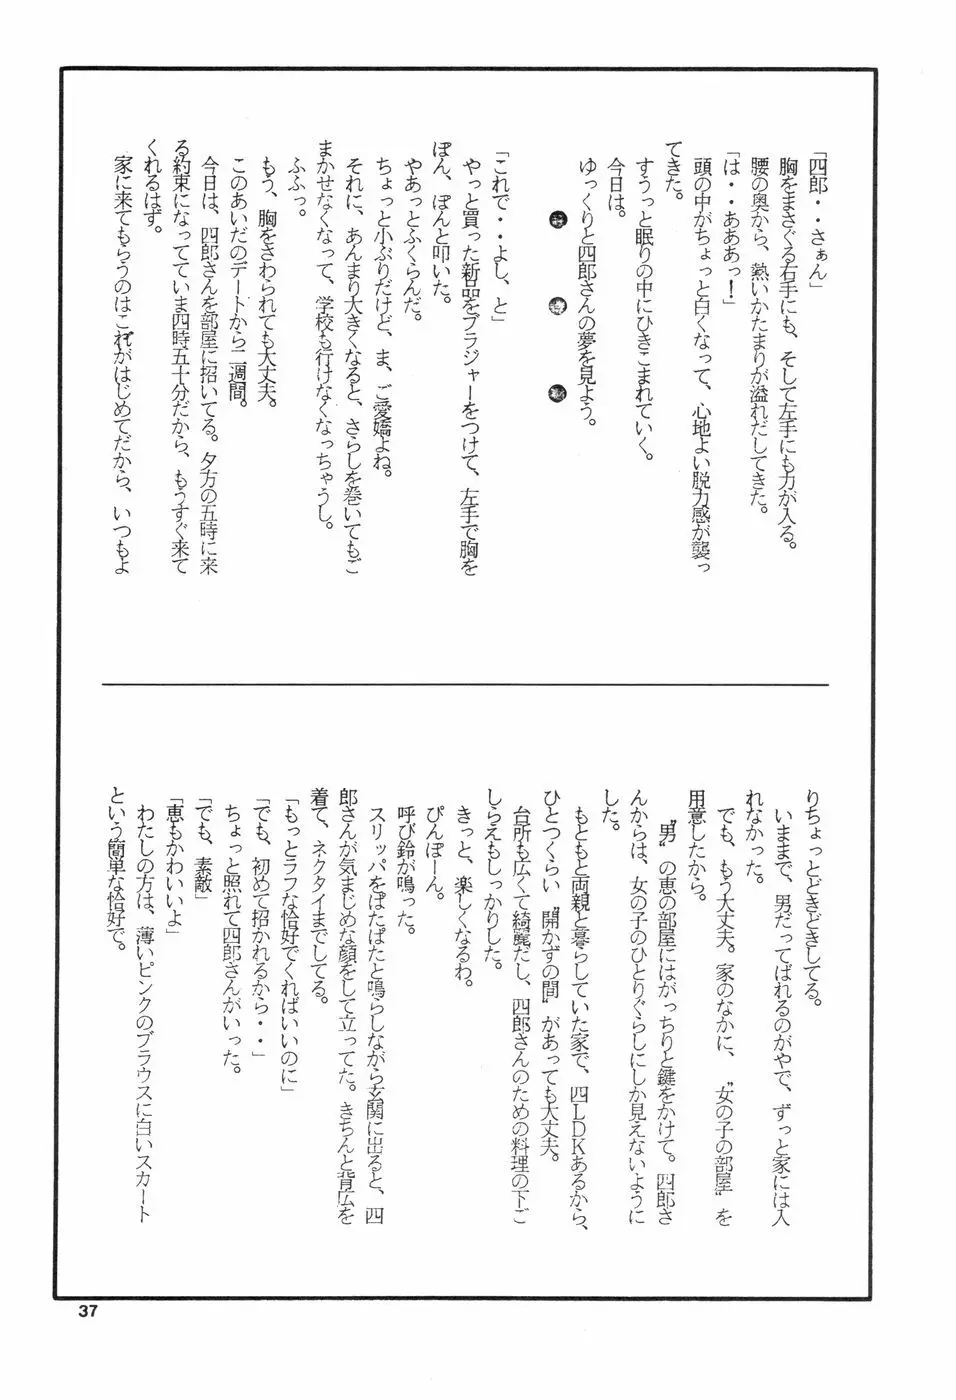 「四郎・・さぁん」
胸をまさぐる右手にも、そして左手にも力が入る。
腰の奥から、熱いかたまりが溢れだしてきた。
「は・・あああっ！」
頭の中がちょっと白くなって、心地よい脱力感が襲っ
てきた。
すうっと眠りの中にひきこまれていく。
今日は。
ゆっくりと四郎さんの夢を見よう。
「これで・・よし、と」
やっと買った新品をブラジャーをつけて、左手で胸を
ぽん、ぽんと叩いた。
やあっとふくらんだ。
ちょっと小ぶりだけど、ま、ご愛嬌よね。
それに、あんまり大きくなると、さらしを巻いてもご
まかせなくなって、学校も行けなくなっちゃうし。
ふふっ。
もう、胸をさわられても大丈夫。
このあいだのデートから二週間。
今日は、四郎さんを部屋に招いてる。夕方の五時に来
る約束になってていま四時五十分だから、もうすぐ来て
くれるはず。
家に来てもらうのはこれがはじめてだから、いつもよ
りちょっとどきどきしてる。
いままで、男だってばれるのがやで、ずっと家には入
れなかった。
でも、もう大丈夫。家のなかに、〝女の子の部屋〟を
用意したから。
〝男〟の恵の部屋にはがっちりと鍵をかけて。四郎さ
んからは、女の子のひとりぐらしにしか見えないように
した。
もともと両親と暮らしていた家で、四ＬＤＫあるから、
ひとつくらい〝開かずの間〟があっても大丈夫。
台所も広くて綺麗だし、四郎さんのための料理の下ご
しらえもしっかりした。
きっと、楽しくなるわ。
ぴんぽーん。
呼び鈴が鳴った。
スリッパをぱたぱたと鳴らしながら玄関に出ると、四
郎さんが気まじめな顔をして立ってた。きちんと背広を
着て、ネクタイまでしてる。
「もっとラフな恰好でくればいいのに」
「でも、初めて招かれるから・・」
ちょっと照れて四郎さんがいった。
「でも、素敵」
「恵もかわいいよ」
わたしの方は、薄いピンクのブラウスに白いスカート
という簡単な恰好で。
37